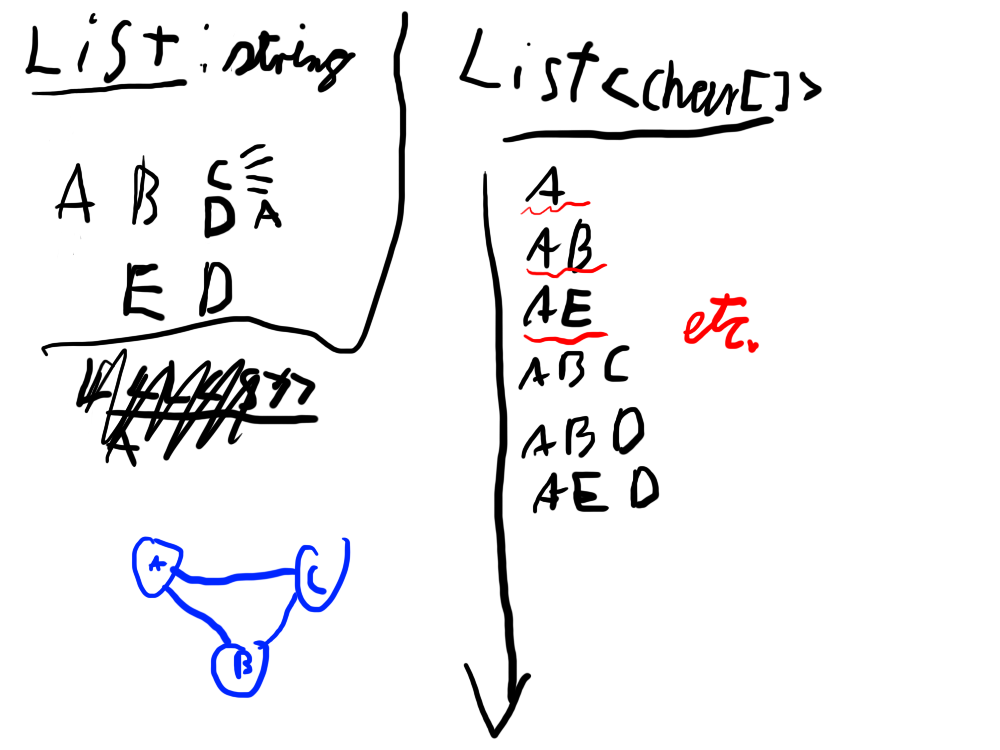 List : string
A B C
D A
E D
List<char[]>
A
AB
AE
etc.
ABC
ABD
AED
A
A C
B